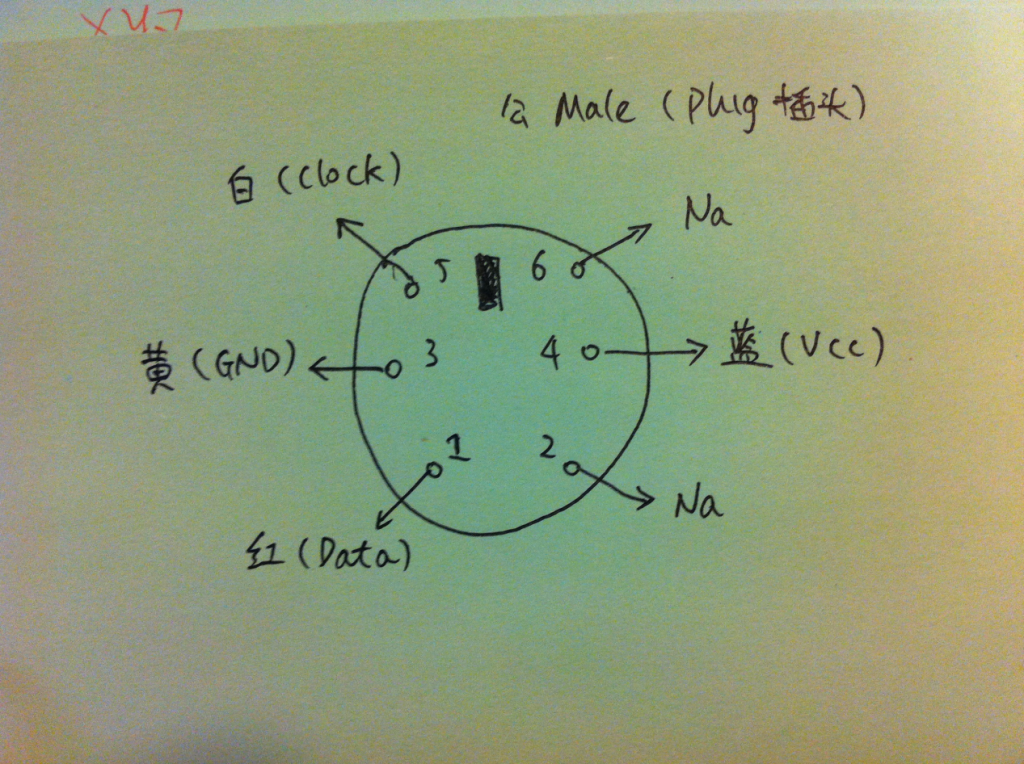 公 Male (Plug 插头)
白 (Clock)
Na
5
6
黄 (GND)
3
4
蓝 (Vcc)
1
2
Na
红 (Data)